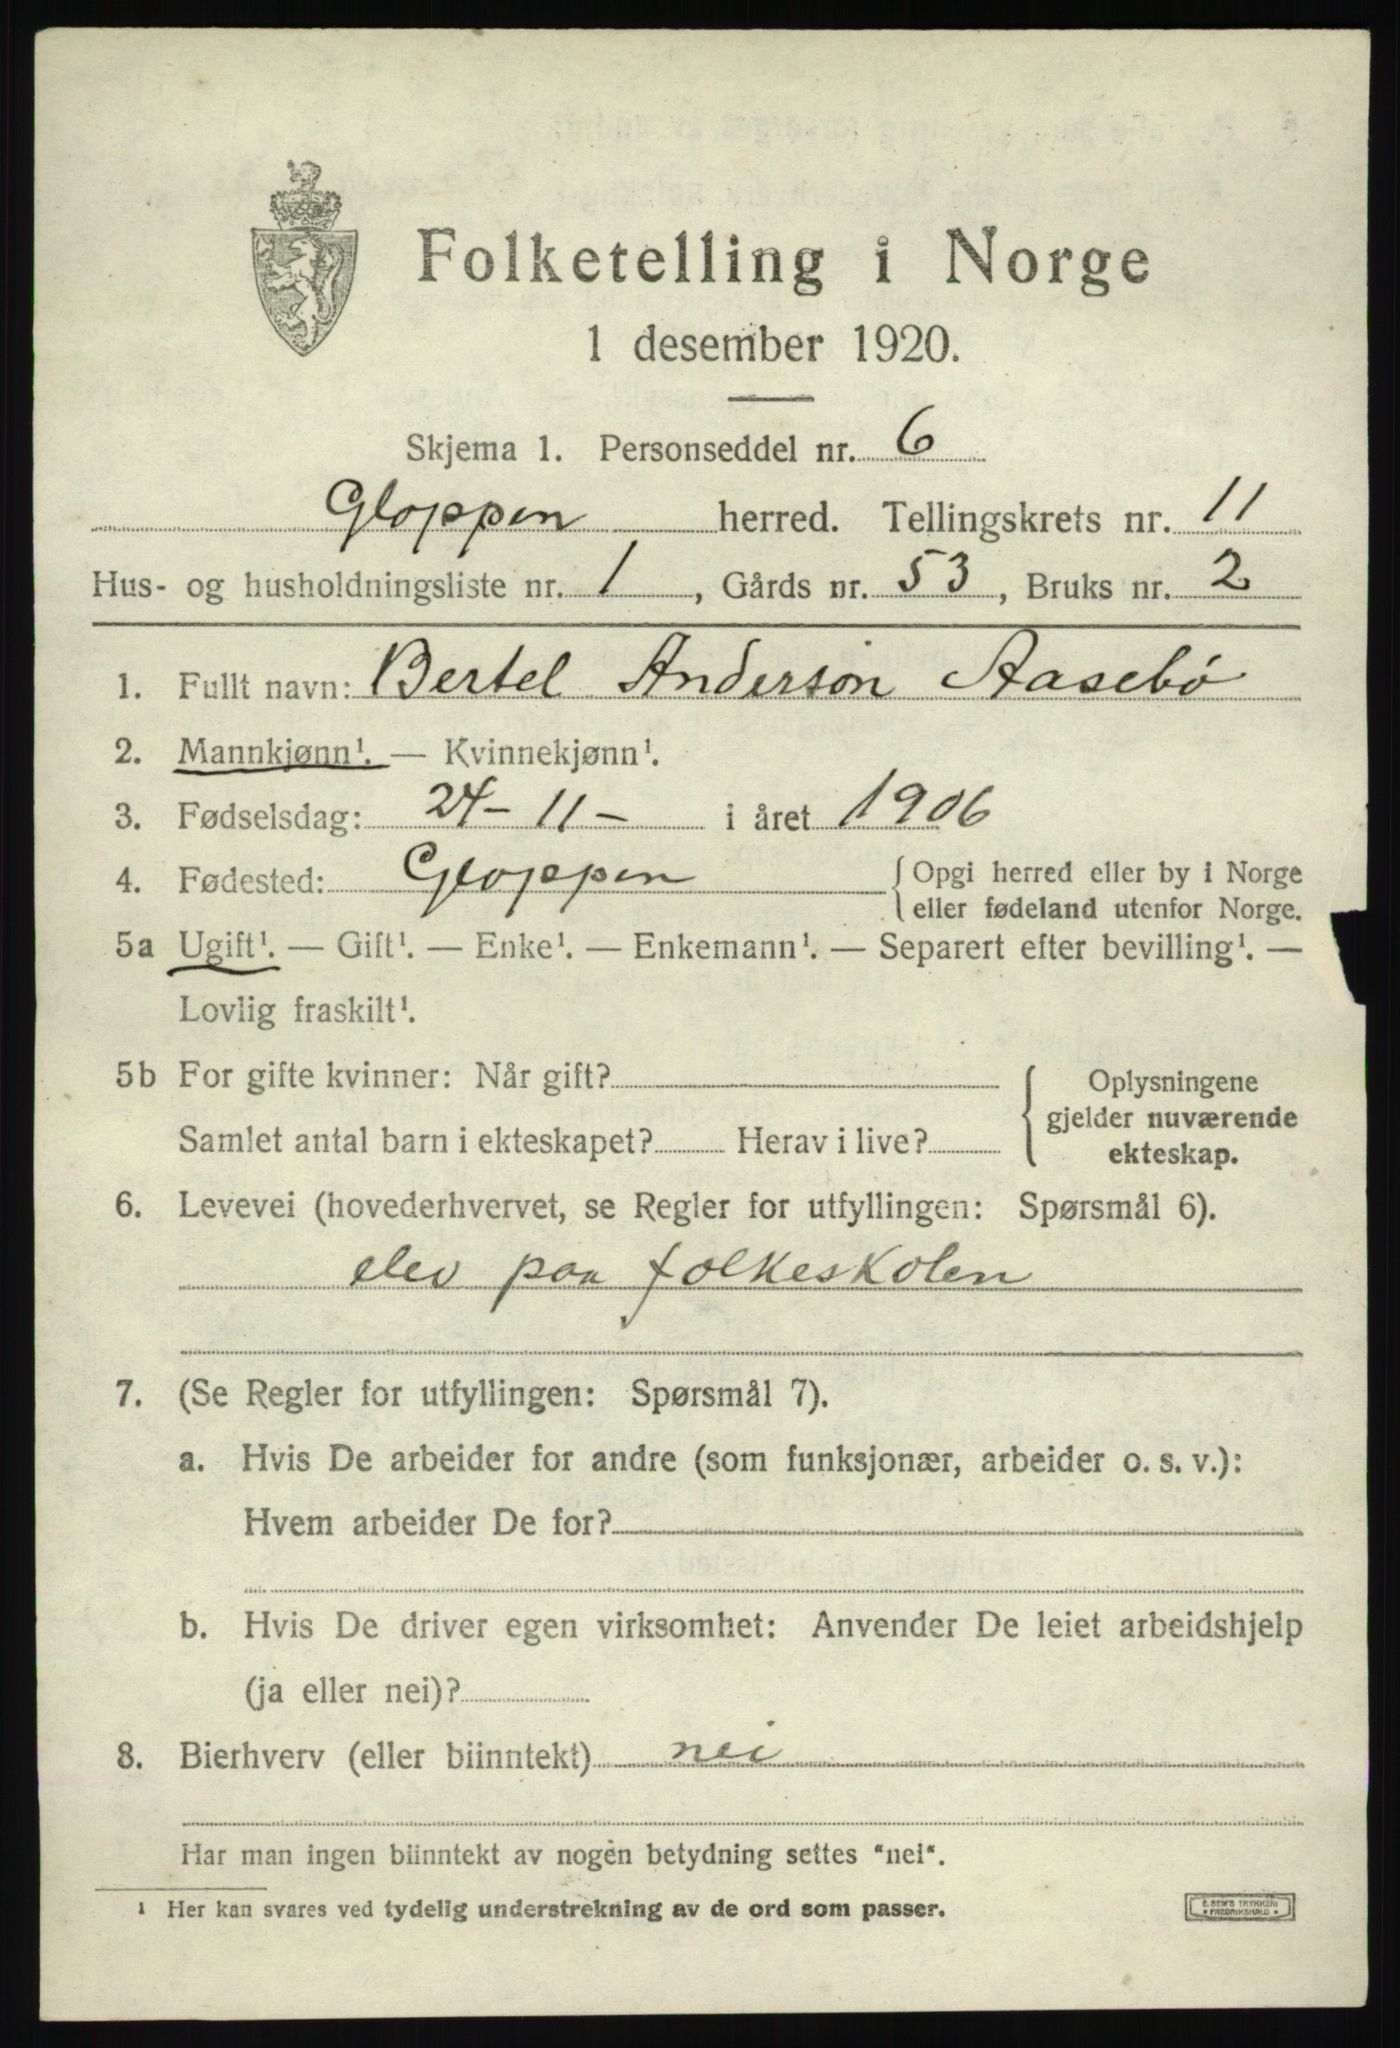 Folketelling i Norge
1 desember 1920.
Skjema 1. Personseddel nr. 6
Gloppen herred. Tellingskrets nr. 11
Hus- og husholdningsliste nr. 1, Gårds nr. 53, Bruks nr. 2
1. Fullt navn: Bertel Anderson Aasebö
2. Mannkjønn¹. — Kvinnekjønn¹.
3. Fødselsdag: 24-11- i året 1906
4. Fødested: Gloppen { Opgi herred eller by i Norge
eller fødeland utenfor Norge.
5a Ugift¹. — Gift¹. — Enke¹. — Enkemann¹. — Separert efter bevilling¹. —
Lovlig fraskilt¹.
5b For gifte kvinner: Når gift? { Oplysningene
gjelder nuværende
Samlet antal barn i ekteskapet? Herav i live? ekteskap.
6. Levevei (hovederhvervet, se Regler for utfyllingen: Spørsmål 6).
elev paa folkeskolen
7. (Se Regler for utfyllingen: Spørsmål 7).
a. Hvis De arbeider for andre (som funksjonær, arbeider o. s. v.):
Hvem arbeider De for?
b. Hvis De driver egen virksomhet: Anvender De leiet arbeidshjelp
(ja eller nei)?
8. Bierhverv (eller biinntekt) nei
Har man ingen biinntekt av nogen betydning settes "nei".
¹ Her kan svares ved tydelig understrekning av de ord som passer.
E. SEM'S TRYKKERI
FREDRIKSHALD